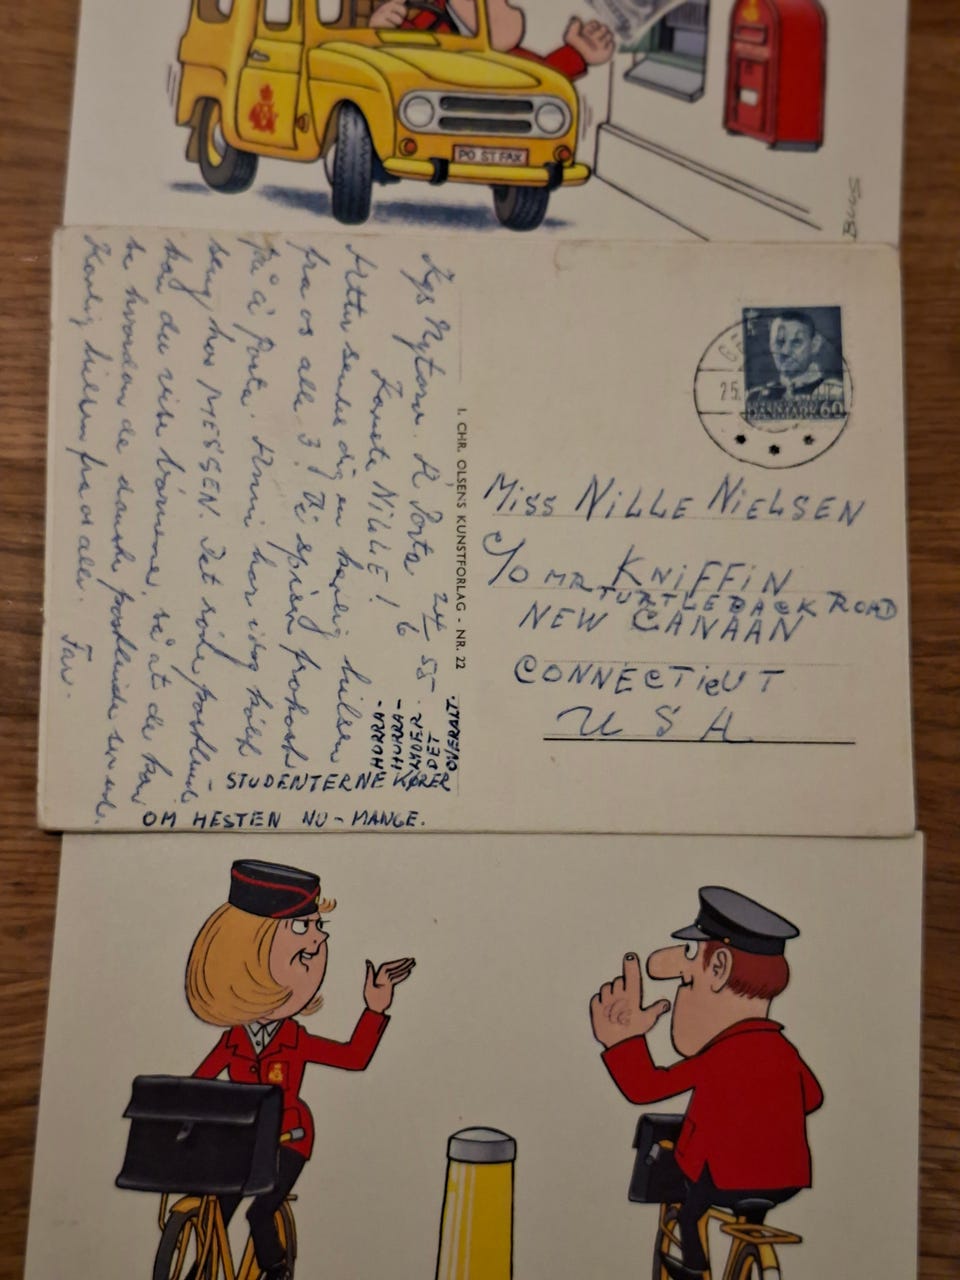 PO ST FAX
BUDS
Kgs Nytorv. A Porta 24/6 55.
Kæreste NILLE!
Atter sendes dig en kærlig hilsen
fra os alle 3. Vi spiser frokost
på á Porta. Anni har idag købt
hos MESSEN. Det røde postbud
kan du vise børnene, så at de kan
se hvordan de danske postbude ser ud.
Kærlig hilsen fra os alle.
Far.
HURRA-
HURRA-
LYDER
DET
OVERALT.
- STUDENTERNE KØRER
OM HESTEN NU - MANGE.
I. CHR. OLSENS KUNSTFORLAG - NR. 22
25.
DANMARK 60
MISS NILLE NIELSEN
C/O MR KNIFFIN
TURTLEBACK ROAD
NEW CANAAN
CONNECTICUT
USA